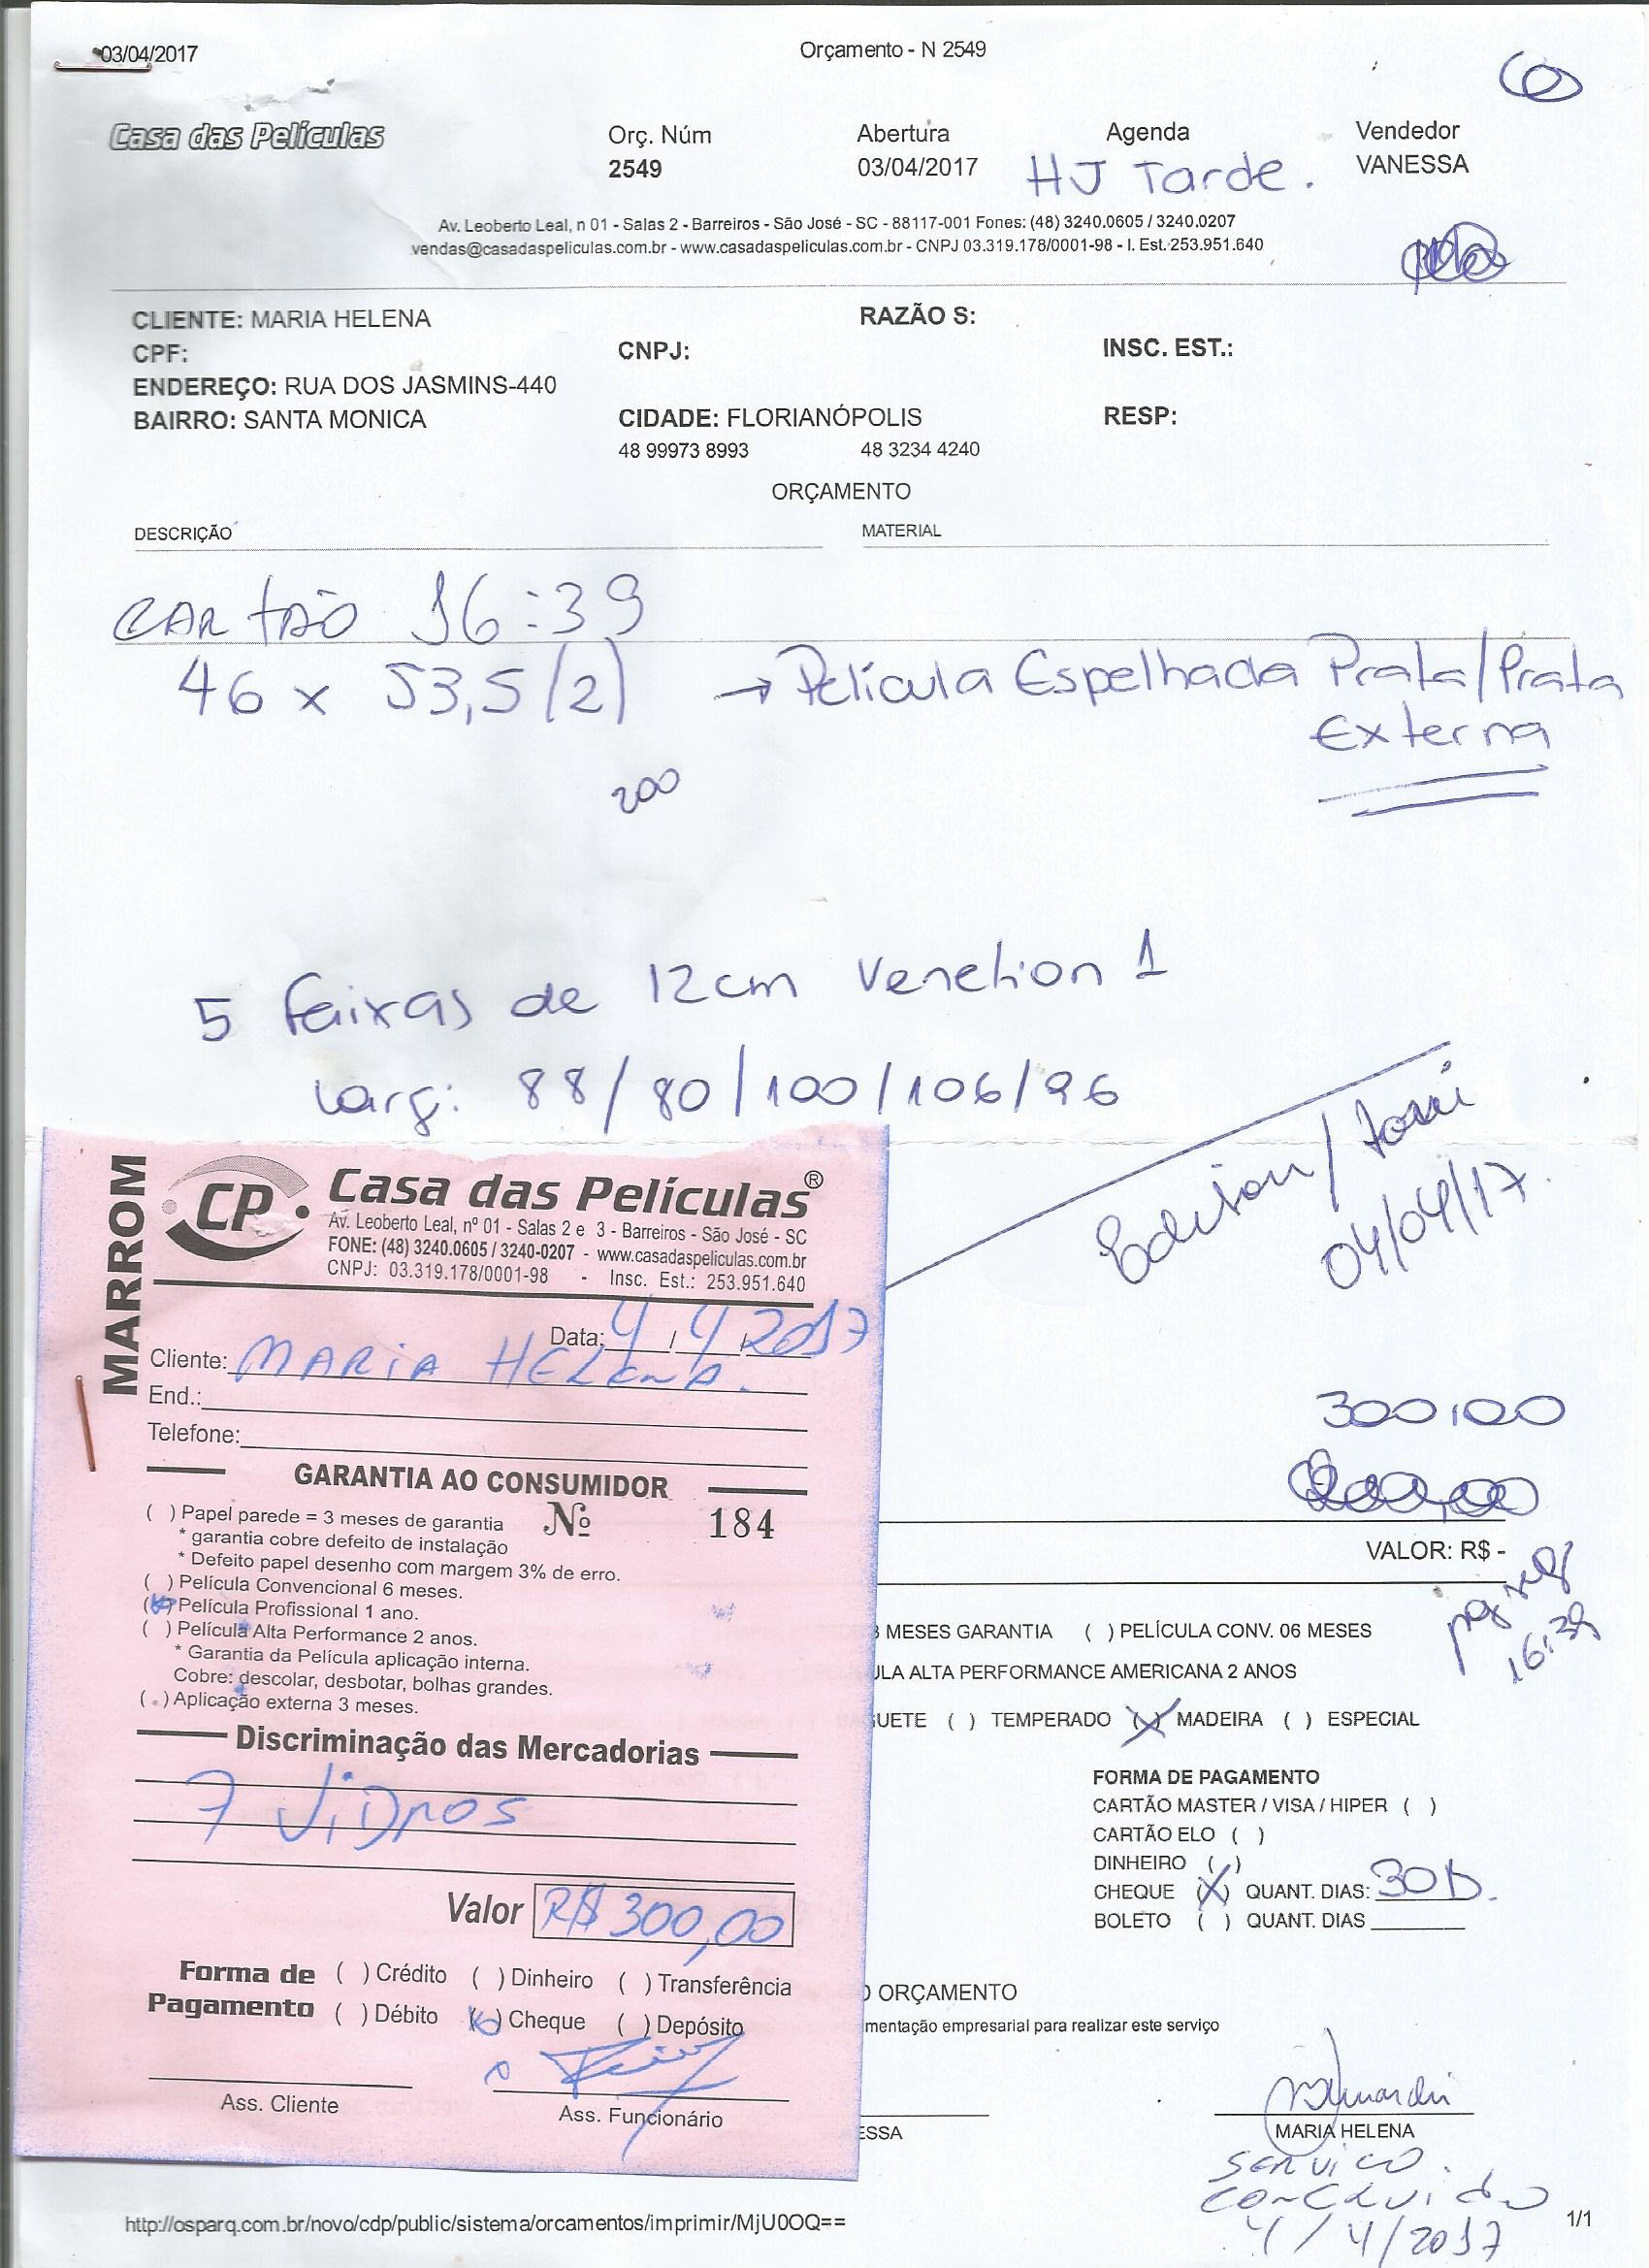 03/04/2017
Orçamento - N 2549
Casa das Películas
Orç. Núm
2549
Abertura
03/04/2017
Agenda
HJ Tarde.
Vendedor
VANESSA
Av. Leoberto Leal, n 01 - Salas 2 - Barreiros - São José - SC - 88117-001 Fones: (48) 3240.0605 / 3240.0207
vendas@casadaspeliculas.com.br - www.casadaspeliculas.com.br - CNPJ 03.319.178/0001-98 - I. Est.:253.951.640
CLIENTE: MARIA HELENA
RAZÃO S:
CPF:
CNPJ:
INSC. EST.:
ENDEREÇO: RUA DOS JASMINS-440
BAIRRO: SANTA MONICA
CIDADE: FLORIANÓPOLIS
RESP:
48 99973 8993
48 3234 4240
ORÇAMENTO
DESCRIÇÃO
MATERIAL
CARTÃO 16:39
46 x 53,5 (2) → Película Espelhada Prata/Prata
Externa
200
5 faixas de 12cm Venetion 1
Larg: 88/80/100/106/96
Edison/
04/04/17.
MARROM
CP
Casa das Películas®
Av. Leoberto Leal, nº 01 - Salas 2 e 3 - Barreiros - São José - SC
FONE: (48) 3240.0605 / 3240-0207 - www.casadaspeliculas.com.br
CNPJ: 03.319.178/0001-98 - Insc. Est.: 253.951.640
Data: 4/4/2017
Cliente: MARIA HELENA.
End.:
Telefone:
GARANTIA AO CONSUMIDOR
Nº 184
( ) Papel parede = 3 meses de garantia
* garantia cobre defeito de instalação
* Defeito papel desenho com margem 3% de erro.
( ) Película Convencional 6 meses.
(x) Película Profissional 1 ano.
( ) Película Alta Performance 2 anos.
* Garantia da Película aplicação interna.
Cobre: descolar, desbotar, bolhas grandes.
( ) Aplicação externa 3 meses.
Discriminação das Mercadorias
7 ViDROS
Valor R$ 300,00
Forma de Pagamento
( ) Crédito ( ) Dinheiro ( ) Transferência
( ) Débito (x) Cheque ( ) Depósito
Ass. Cliente
Ass. Funcionário
300,00
VALOR: R$ -
16:39
3 MESES GARANTIA ( ) PELÍCULA CONV. 06 MESES
ULA ALTA PERFORMANCE AMERICANA 2 ANOS
UETE ( ) TEMPERADO (X) MADEIRA ( ) ESPECIAL
FORMA DE PAGAMENTO
CARTÃO MASTER / VISA / HIPER ( )
CARTÃO ELO ( )
DINHEIRO ( )
CHEQUE (X) QUANT. DIAS: 30D.
BOLETO ( ) QUANT. DIAS
O ORÇAMENTO
mentação empresarial para realizar este serviço
ESSA
MARIA HELENA
SERVICO.
CONCLUIDO
4/4/2017
http://osparq.com.br/novo/cdp/public/sistema/orcamentos/imprimir/MjU0OQ==
1/1